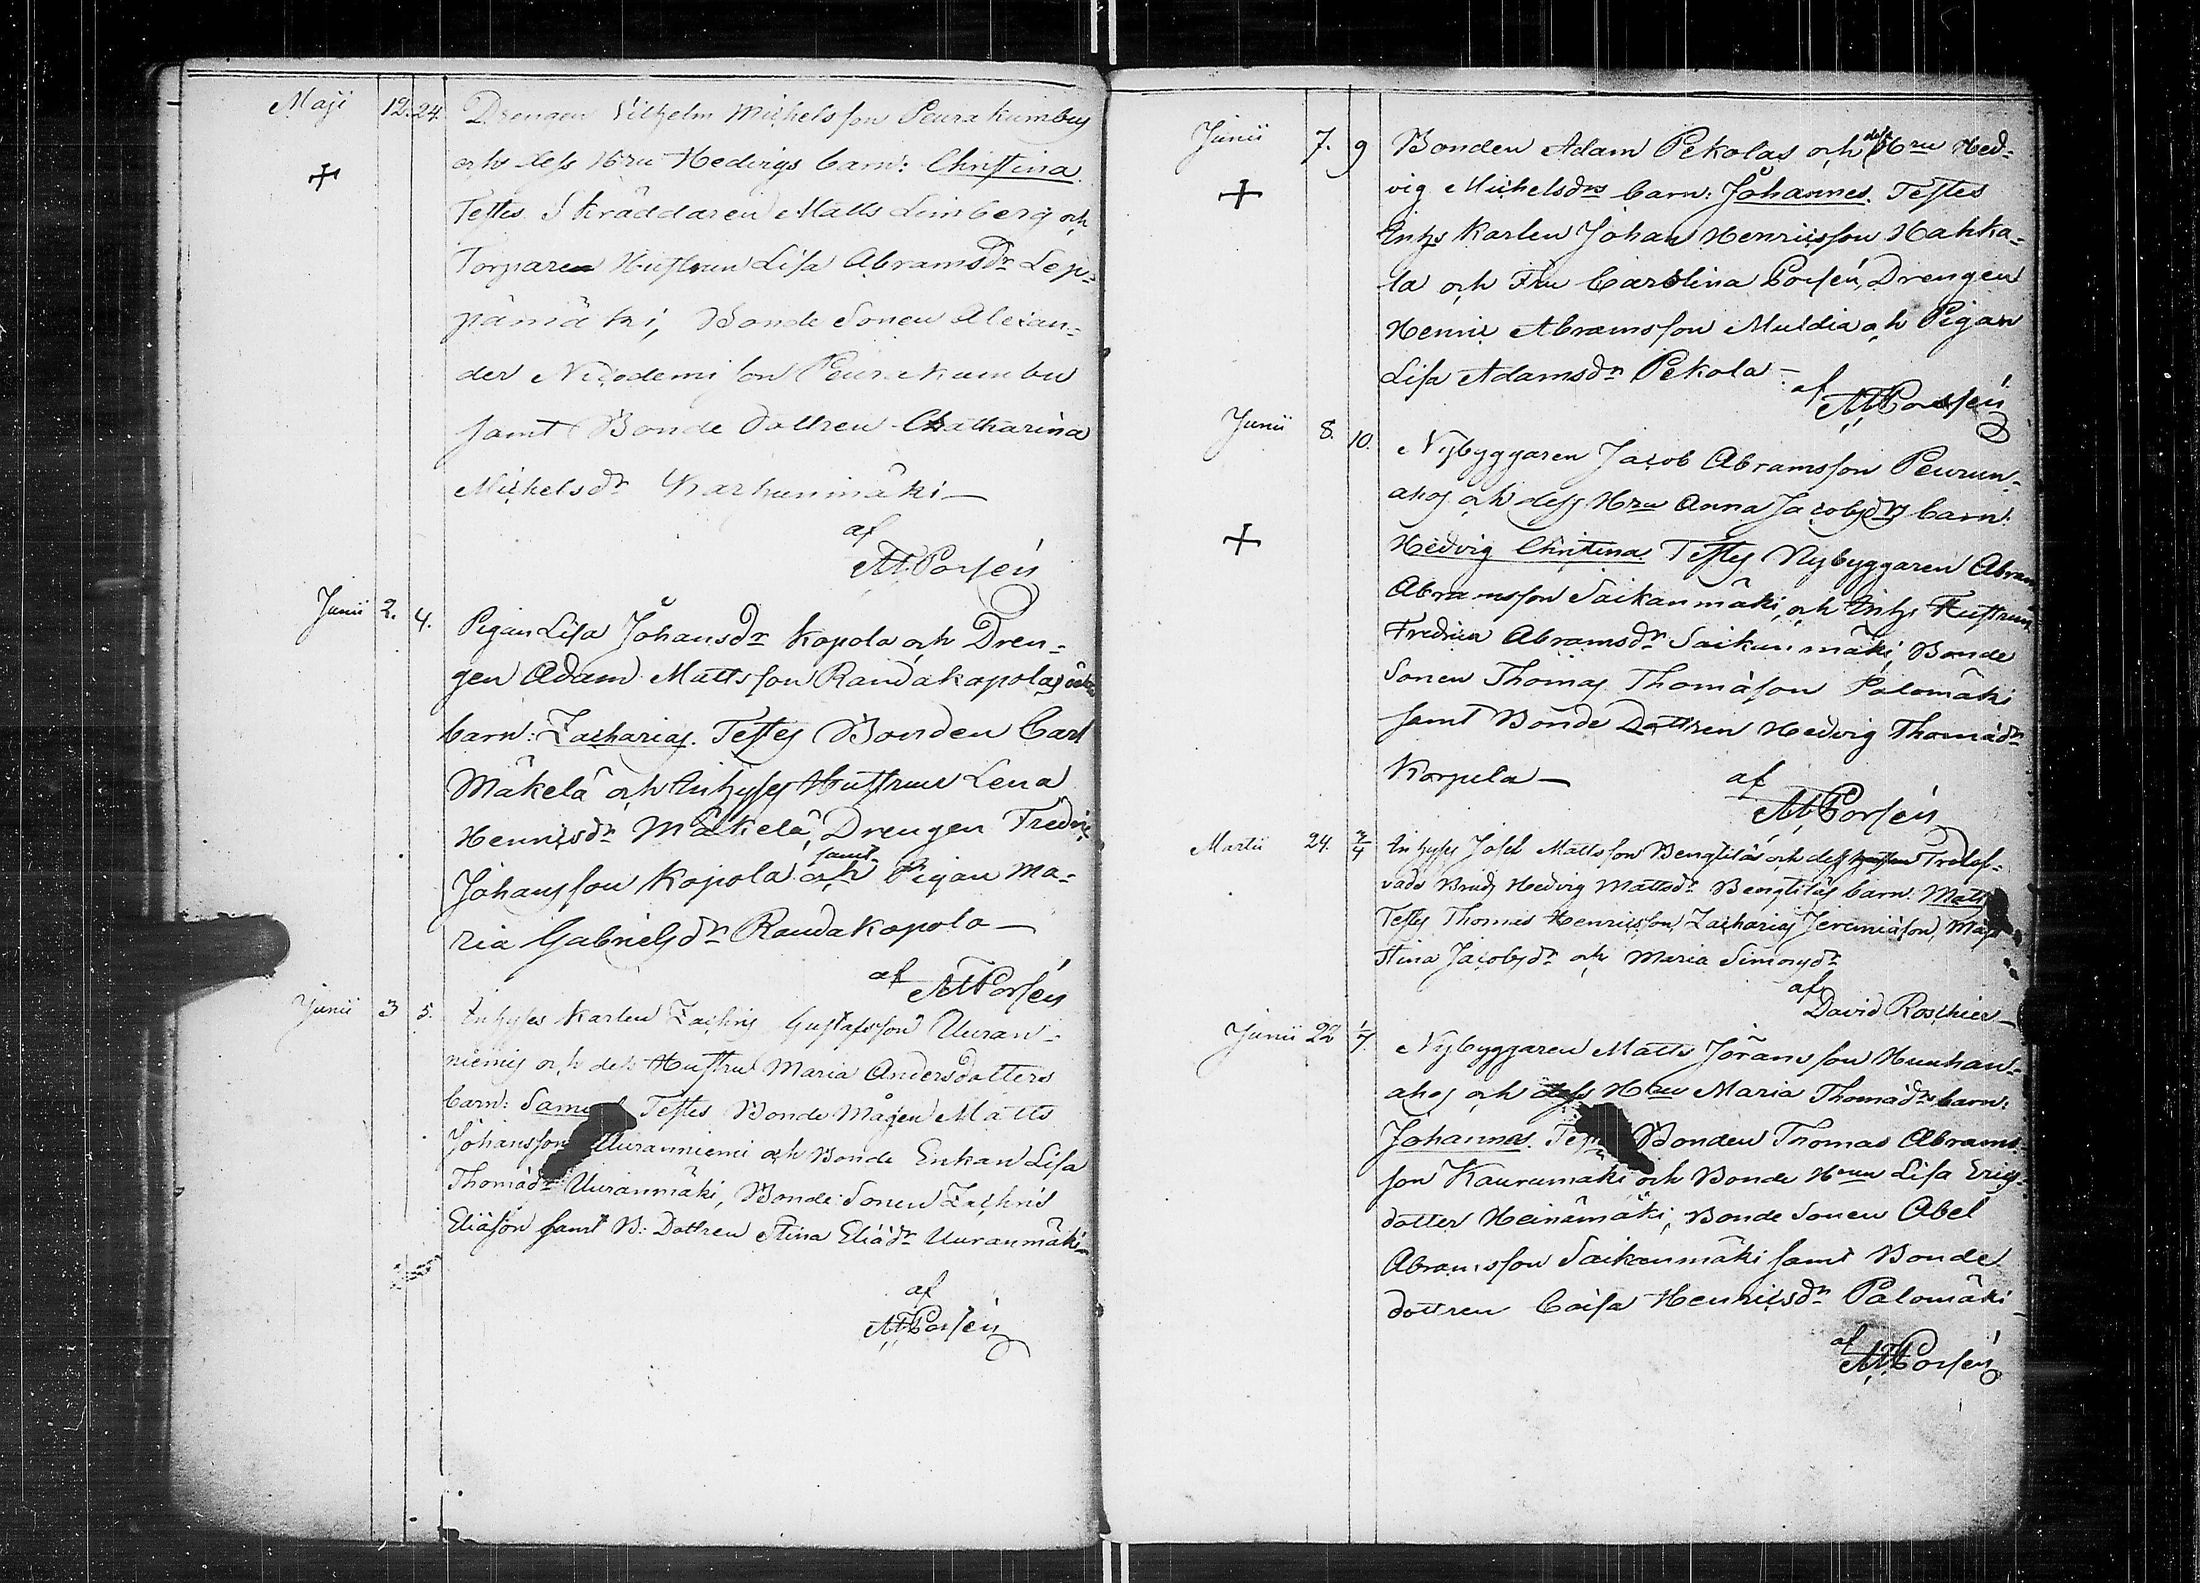 Maji 12. 24. Drengen Vilhelm Michelsson Peurakumbus
och dess Hru Hedvigs barn: Christina.
Testes Skräddaren Matts Limberg och
Torparen Hustrun Lisa Abramsdr Lep-
pämäki, Bonde Sonen Alexan-
der Nicodemisson Peurakumbu
samt Bonde Dottren Catharina
Michelsdr Karhunmäki —
af
AMPorsén
Junii 2. 4. Pigan Lisa Johansdr Kopola och Dren-
gen Adam Mattsson Raudakopolas
barn: Zacharias. Testes Bonden Carl
Mäkelä och Inhyses Hustrun Lena
Henricsdr Mäkelä, Drengen Fredric
Johansson Kopola samt Pigan Ma-
ria Gabrielsdr Raudakopola —
af AMPorsén
Junii 3 5. Inhyses Karlen Zachris Gustafsson Uuran-
niemis och dess Hustru Maria Andersdotters
barn: Samuel Testes Bonde Mågen Matts
Johansson Uuranniemi och Bonde Enkan Lisa
Thomädr Uuranmäki, Bonde Sonen Zachris
Eliäson samt B: Dottren Stina Eliädr Uuranmäki —
af
AMPorsén
Junii 7. 9 Bonden Adam Pekolas och dess Hru Hed-
vig Michelsdrs barn: Johannes. Testes
Inhs Karlen Johan Henricsson Hahka-
la och Fru Carolina Porsén, Drengen
Henric Abramsson Muldia och Pigan
Lisa Adamsdr Pekola —
af
AMPorsén
Junii 8. 10. Nybyggaren Jacob Abramsson Peurun-
ahos och dess Hru Anna Jacobsdrs barn:
Hedvig Christina. Testes Nybyggaren Abram
Abramsson Saikanmäki och Inhs Hustrun
Fredrica Abramsdr Saikanmäki, Bonde
Sonen Thomas Thomäson Palomäki
samt Bonde Dottren Hedvig Thomädr
Korpela —
af
AMPorsén
Martii 24. 7/4 Inhyses Josef Mattsson Bengtiläs och dess Trolof-
vade Bruds Hedvig Mattsdr Bengtiläs barn: Matts
Testes Thomas Henricsson, Zacharias Jeremiäson, Maja
Stina Jacobsdr och Maria Simonsdr
af
David Roschier —
Junii 22 1/7. Nybyggaren Matts Jöransson Huuhan-
ahos och dess Hrus Maria Thomädrs barn:
Johannes. Testes Bonden Thomas Abrams-
son Kaurumäki och Bonde Hrun Lisa Erics-
dotter Heinämäki, Bonde Sonen Abel
Abramsson Saikanmäki samt Bonde
dottren Caisa Henricsdr Palomäki —
af
AMPorsén